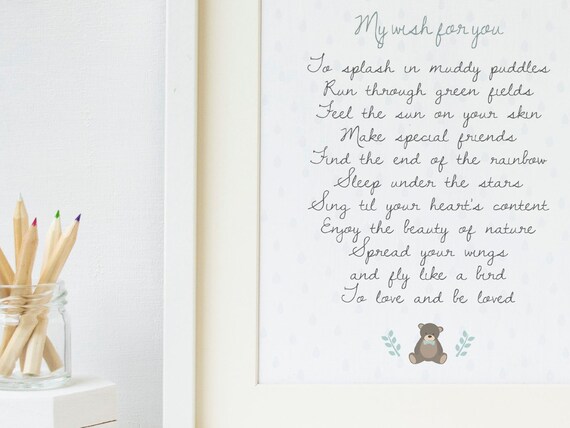 My wish for you
To splash in muddy puddles
Run through green fields
Feel the sun on your skin
Make special friends
Find the end of the rainbow
Sleep under the stars
Sing til your heart's content
Enjoy the beauty of nature
Spread your wings
and fly like a bird
To love and be loved